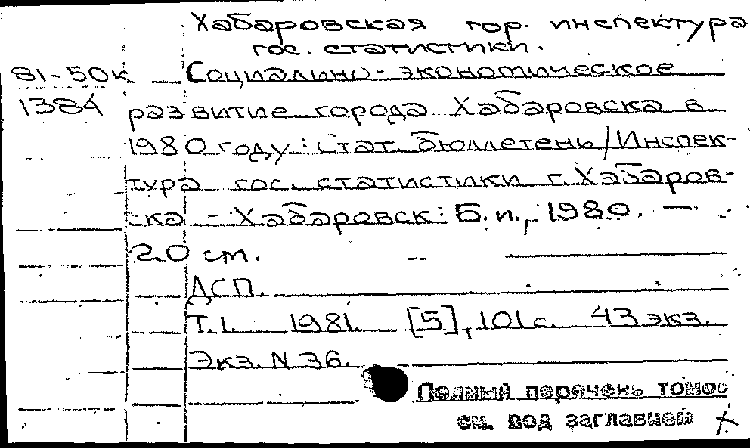 Хабаровская гор. инспектура
гос. статистики.
81-50к Социально-экономическое
1384 развитие города Хабаровска в
1980 году: Стат. бюллетень/Инспек-
тура гос. статистики г. Хабаров-
ска - Хабаровск: Б.и., 1980. —
20 см.
ДСП.
Т.1. 1981. [5], 101 с. 43 экз.
Экз. N 36.
Полный перечень томов
см. под заглавием